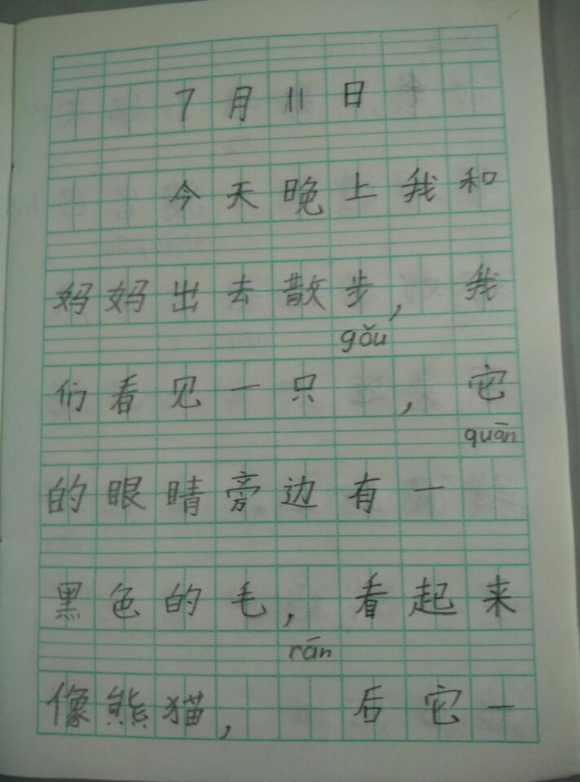 7月11日
今天晚上我和
妈妈出去散步，我
gǒu
们看见一只，它
quān
的眼睛旁边有一
黑色的毛，看起来
rán
像熊猫，后它一